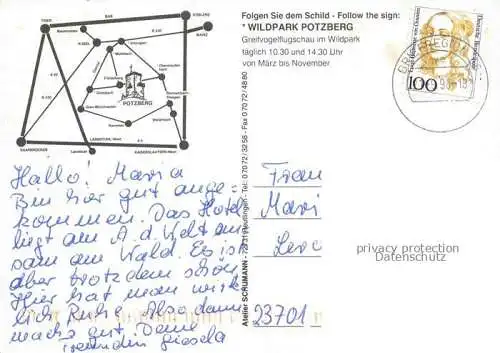 TRIER
BAD
KOBLENZ
MAINZ
POTZBERG
SAARBRÜCKEN
LANDSTUHL-West
Landstuhl
KAISERSLAUTERN-West
Folgen Sie dem Schild - Follow the sign:
* WILDPARK POTZBERG
Greifvogelflugschau im Wildpark
täglich 10.30 und 14.30 Uhr
von März bis November
Atelier SCHUMANN - Reutlingen - Tel: 07072/3258 - Fax 07072/4880
Deutsche Bundespost
100
Hallo! Maria
Bin hier gut ange-
kommen. Das Hotel
liegt am A. d. Welt am
sam am Wald. Es ist
aber trotzdem schön
Hier hat man wirk-
lich Ruhe. Also dann
machs gut. Deine
Freundin Gisela
Frau
Mari
23701
privacy protection
Datenschutz